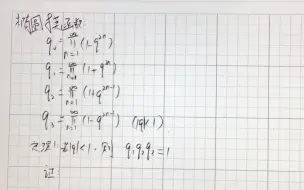 椭圆 函数:
q₀ = ∏_{n=1}^{∞} (1-q^{2n})
q₁ = ∏_{n=1}^{∞} (1+q^{2n})
q₂ = ∏_{n=1}^{∞} (1+q^{2n-1})
q₃ = ∏_{n=1}^{∞} (1-q^{2n-1}) (|q|<1)
定理1: 若|q|<1, 则 q₁q₂q₃=1
证: